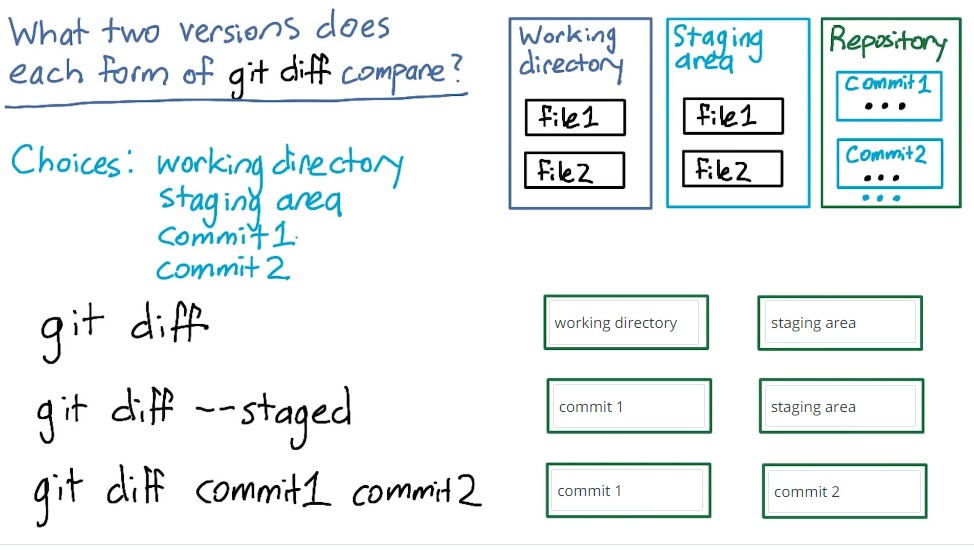 What two versions does
each form of git diff compare?
Choices: working directory
staging area
commit 1
commit 2
Working
directory
file1
file2
Staging
area
file1
file2
Repository
Commit1
...
Commit2
...
...
git diff
working directory
staging area
git diff --staged
commit 1
staging area
git diff commit1 commit2
commit 1
commit 2